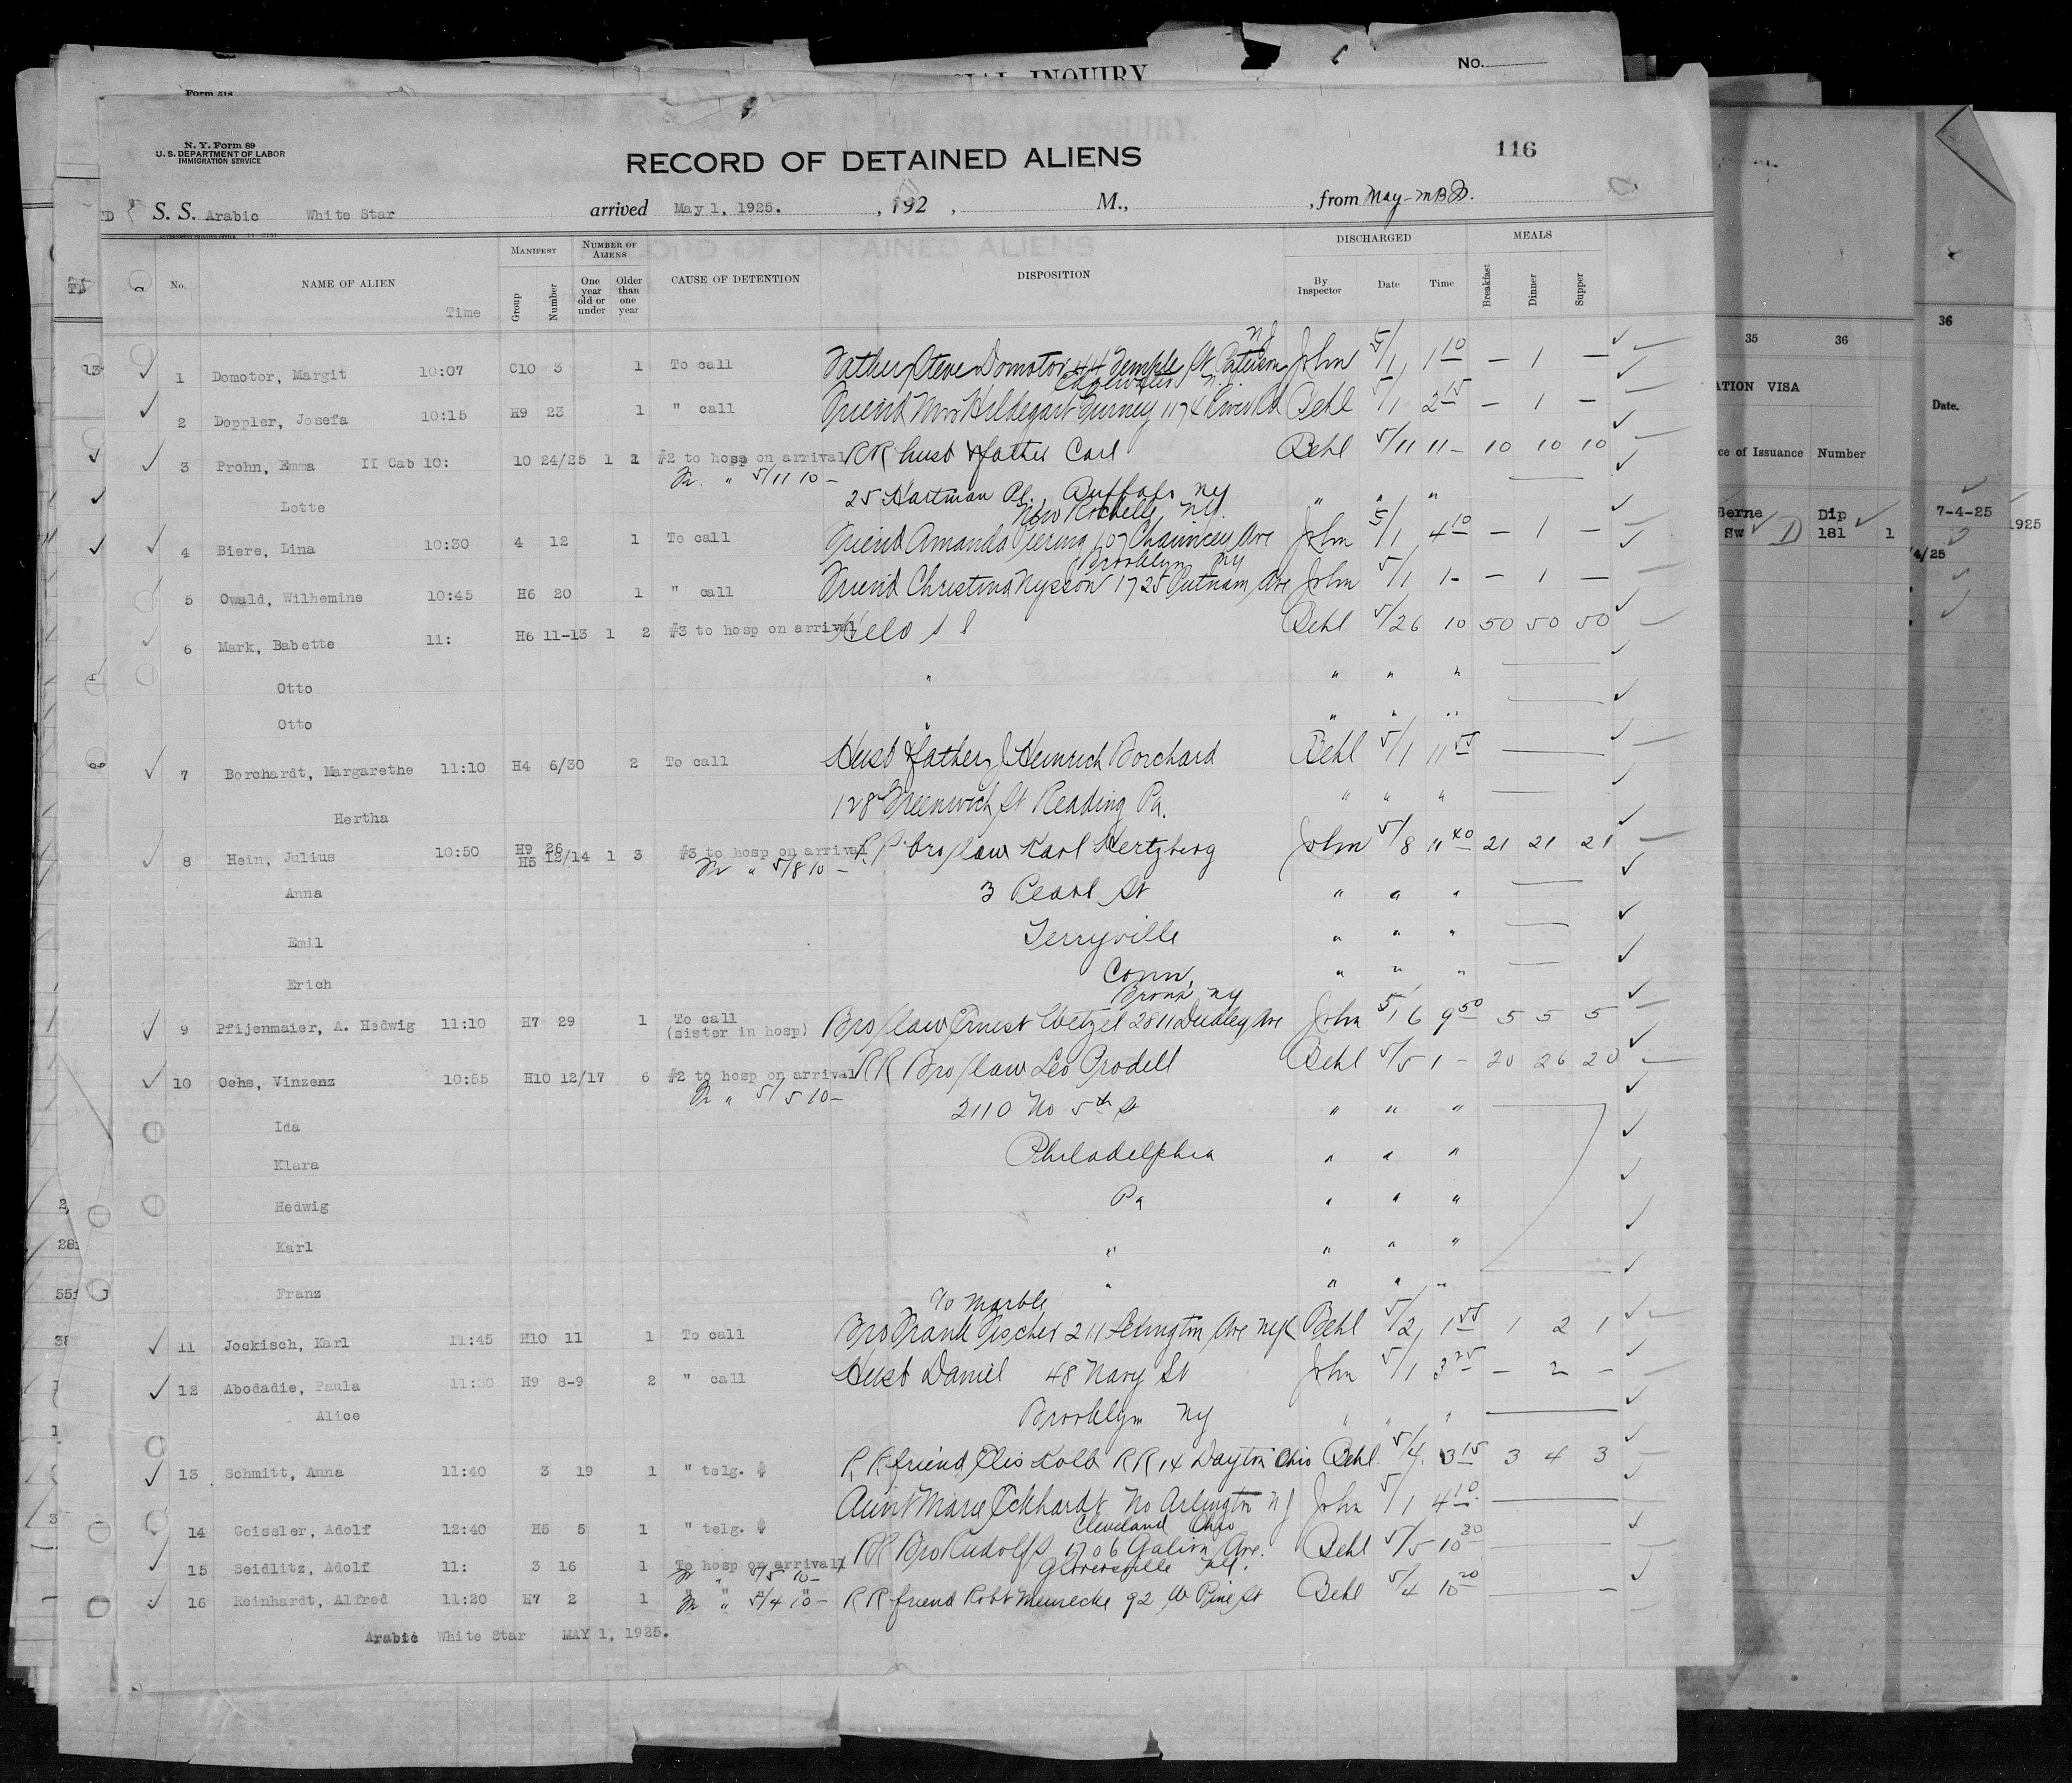 SPECIAL INQUIRY
No.
Form 518
N. Y. Form 89
U. S. DEPARTMENT OF LABOR
IMMIGRATION SERVICE
RECORD OF DETAINED ALIENS
116
S. S. Arabic White Star arrived May 1, 1925. , 192 , M., , from May-MBD.
No. NAME OF ALIEN Time MANIFEST Group Number NUMBER OF ALIENS One year old or under Older than one year CAUSE OF DETENTION DISPOSITION DISCHARGED By Inspector Date Time MEALS Breakfast Dinner Supper
NJ
1 Domotor, Margit 10:07 C10 3 1 To call Father Steve Domotor 44 Temple St Paterson John 5/1 1 10 — 1 —
Edgewater N.J.
2 Doppler, Josefa 10:15 H9 23 1 " call Friend Mrs Hildegart Gurney 1174 River Rd Behl 5/1 2 15 — 1 —
3 Prohn, Emma II Cab 10: 10 24/25 1 1 #2 to hosp on arrival RR husb & father Carl Behl 5/11 11 — 10 10 10
Fr. " 5/11 10 —
Lotte 25 Hartman Pl., Buffalo NY " " "
New Rochelle NY.
4 Biere, Lina 10:30 4 12 1 To call Friend Amanda Piering 107 Chauncey Ave John 5/1 4 10 — 1 —
Brooklyn NY
5 Owald, Wilhemine 10:45 H6 20 1 " call Friend Christina Nysson 1725 Putnam Ave John 5/1 1 — — 1 —
6 Mark, Babette 11: H6 11-13 1 2 #3 to hosp on arrival Held S I Behl 5/26 10 50 50 50
Otto " " " "
Otto " " " "
7 Borchardt, Margarethe 11:10 H4 6/30 2 To call Husb & father J Heinrich Borchard Behl 5/1 11 55
Hertha 128 Greenwich St Reading Pa. " " "
8 Hein, Julius 10:50 H9 26 H5 12/14 1 3 #3 to hosp on arrival RR bro/law Karl Hertzberg John 5/8 11 40 21 21 21
Fr " 5/8 10 —
Anna 3 Pearl St " " "
Emil Terryville " " "
Erich Conn. " " "
Bronx NY
9 Pfijenmaier, A. Hedwig 11:10 H7 29 1 To call (sister in hosp) Bro/law Ernest Wetzel 2811 Dudley Ave John 5/6 9 50 5 5 5
10 Oehs, Vinzenz 10:55 H10 12/17 6 #2 to hosp on arrival RR Bro/law Leo Prodell Behl 5/5 1 — 20 26 20
Fr " 5/5 10 —
Ida 2110 No 5th St " " "
Klara Philadelphia " " "
Hedwig Pa " " "
Karl " " " "
Franz " " " "
To Marble
11 Jockisch, Karl 11:45 H10 11 1 To call Bro Frank Fischer 211 Lexington Ave NYC Behl 5/2 1 55 1 2 1
12 Abodadie, Paula 11:30 H9 8-9 2 " call Husb Daniel 48 Navy St John 5/1 3 25 — 2 —
Alice Brooklyn NY " " "
13 Schmitt, Anna 11:40 3 19 1 " telg. RR friend Elis Kolb RR 14 Dayton Ohio Behl 5/4 3 15 3 4 3
14 Geissler, Adolf 12:40 H5 5 1 " telg. Aunt Marie Eckhardt No Arlington NJ John 5/1 4 10
Cleveland Ohio
15 Seidlitz, Adolf 11: 3 16 1 To hosp on arrival RR Bro Rudolf S 1706 Galion Ave. Behl 5/5 10 30
Fr " 5/5 10 —
Gloversville NY.
16 Reinhardt, Alfred 11:20 H7 2 1 " " " " RR friend Robt Meinecke 92 W Pine St Behl 5/4 10 20
Fr " 5/4 10 —
Arabic White Star MAY 1, 1925.
35 36
ATION VISA
ce of Issuance Number
Berne Dip
Sw D 181 1
36
Date.
7-4-25
4/25
1925